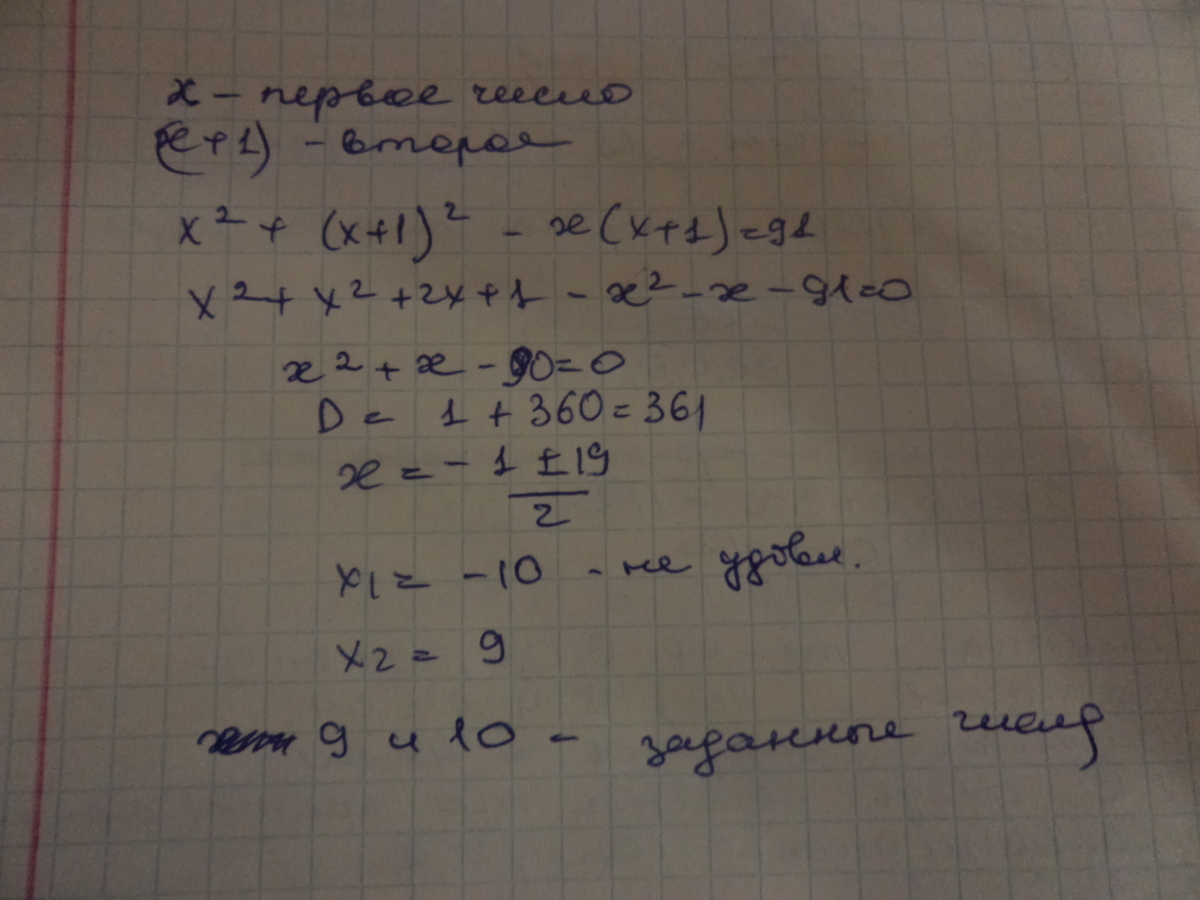 x – первое число
(x+1) – второе
x² + (x+1)² - x(x+1)=91
x²+x²+2x+1-x²-x-91=0
x²+x-90=0
D = 1+360=361
x = -1±19
2
x₁= -10 - не удовл.
x₂= 9
9 и 10 – заданные числа